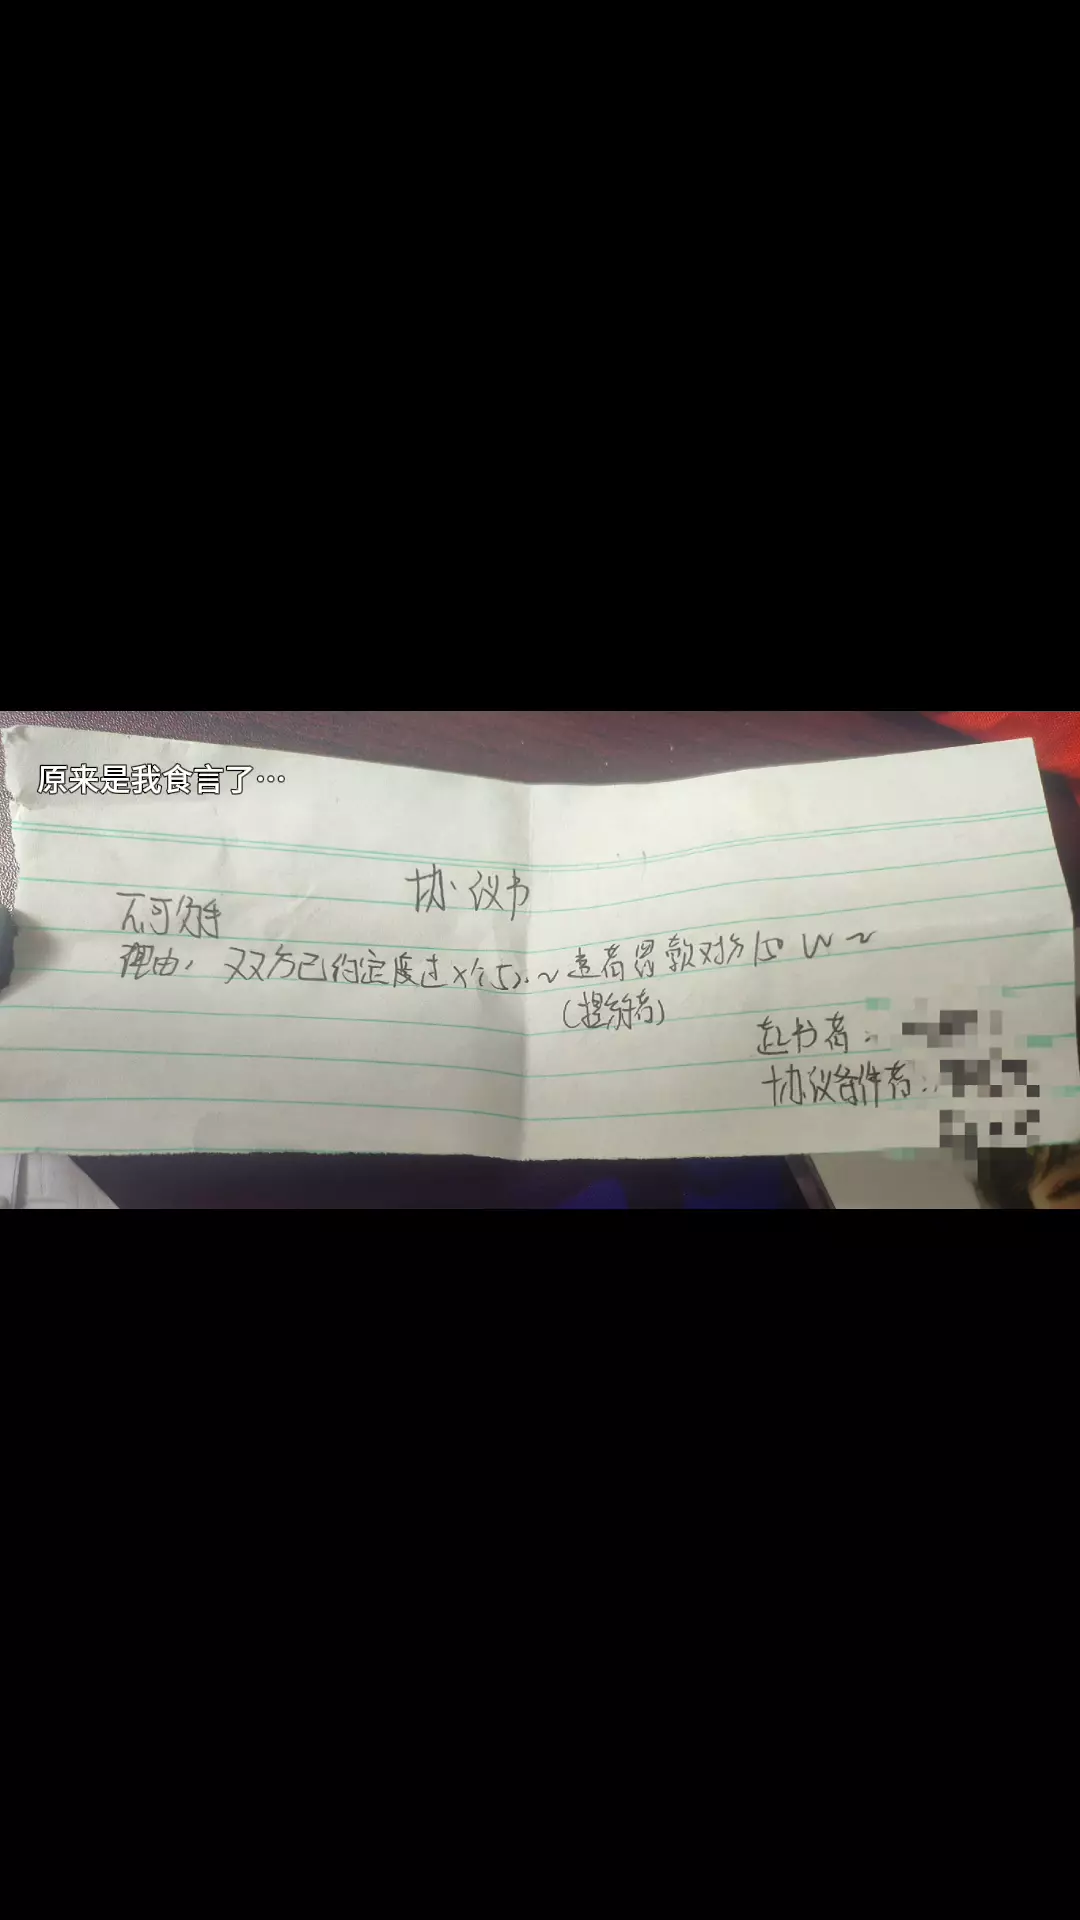 原来是我食言了…
协议书
不可分手
理由，双方已约定度过x个5.2~违者罚款对方150W~
(提分者)
起书者：
协议条件者：